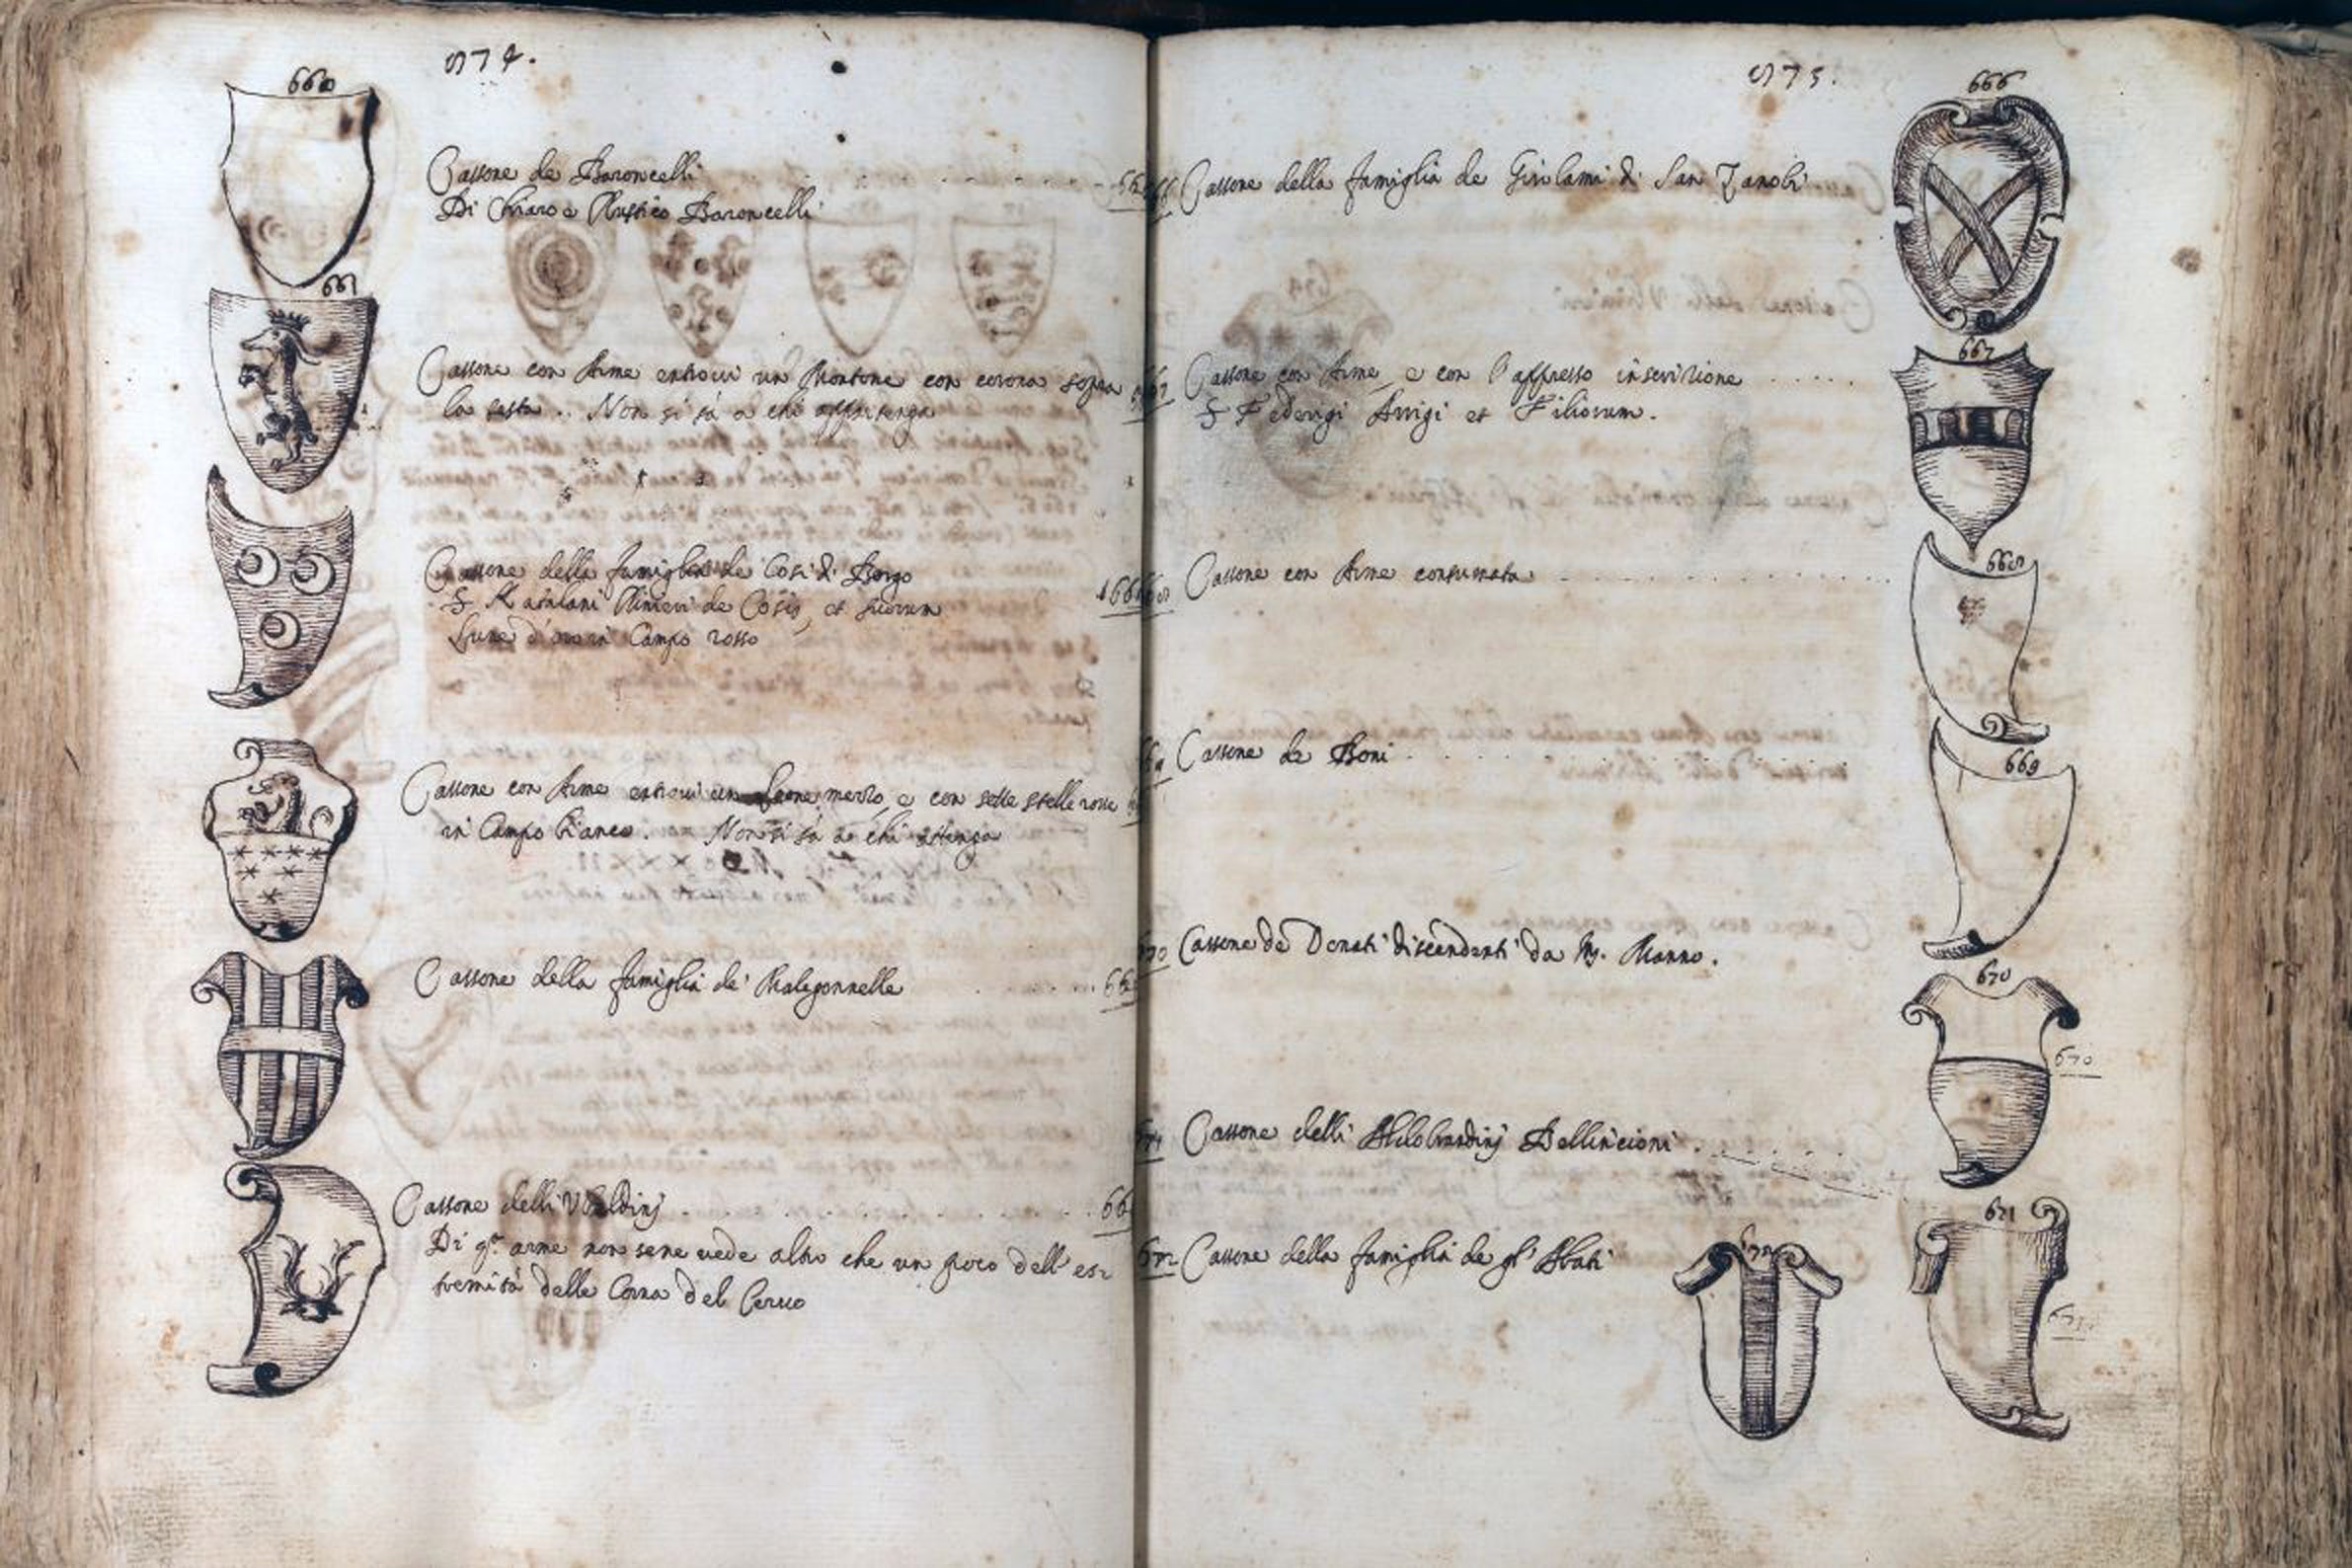 574.
660
Cassone de Baroncelli
Di Chiaro e Rustico Baroncelli
661
Cassone con Arme entrovi un Montone con corona sopra
la testa. . Non si sà a chi appartenga
Cassone della famiglia de Cosi di Borgo
S Rinieri de Cosis, et suorum
Lune d'oro in Campo rosso
Cassone con Arme entrovi un Leone mezzo, e con sette stelle rosse
in Campo bianco. Non si sà a chi attenga
Cassone della famiglia de' Malegonnelle
Cassone delli Ubaldinj
Di qta. arme non se ne vede altro che un poco dell' es=
tremità delle Corna del Cervo
575.
666
Cassone della famiglia de Girolami di San Zanobi
667
Cassone con Arme, e con l'appresso inscrizione
S Federigi Arrigi et Filiorum.
668
Cassone con Arme consumata
669
Cassone de Boni
670
670
Cassone de Donati discendenti da M. Manno.
671
Cassone delli Aldobrandinj Bellincioni.
671
672
Cassone della famiglia de gl' Abati
672